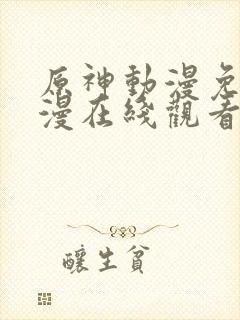 原神動漫免
漫在綫觀看
釀生貧